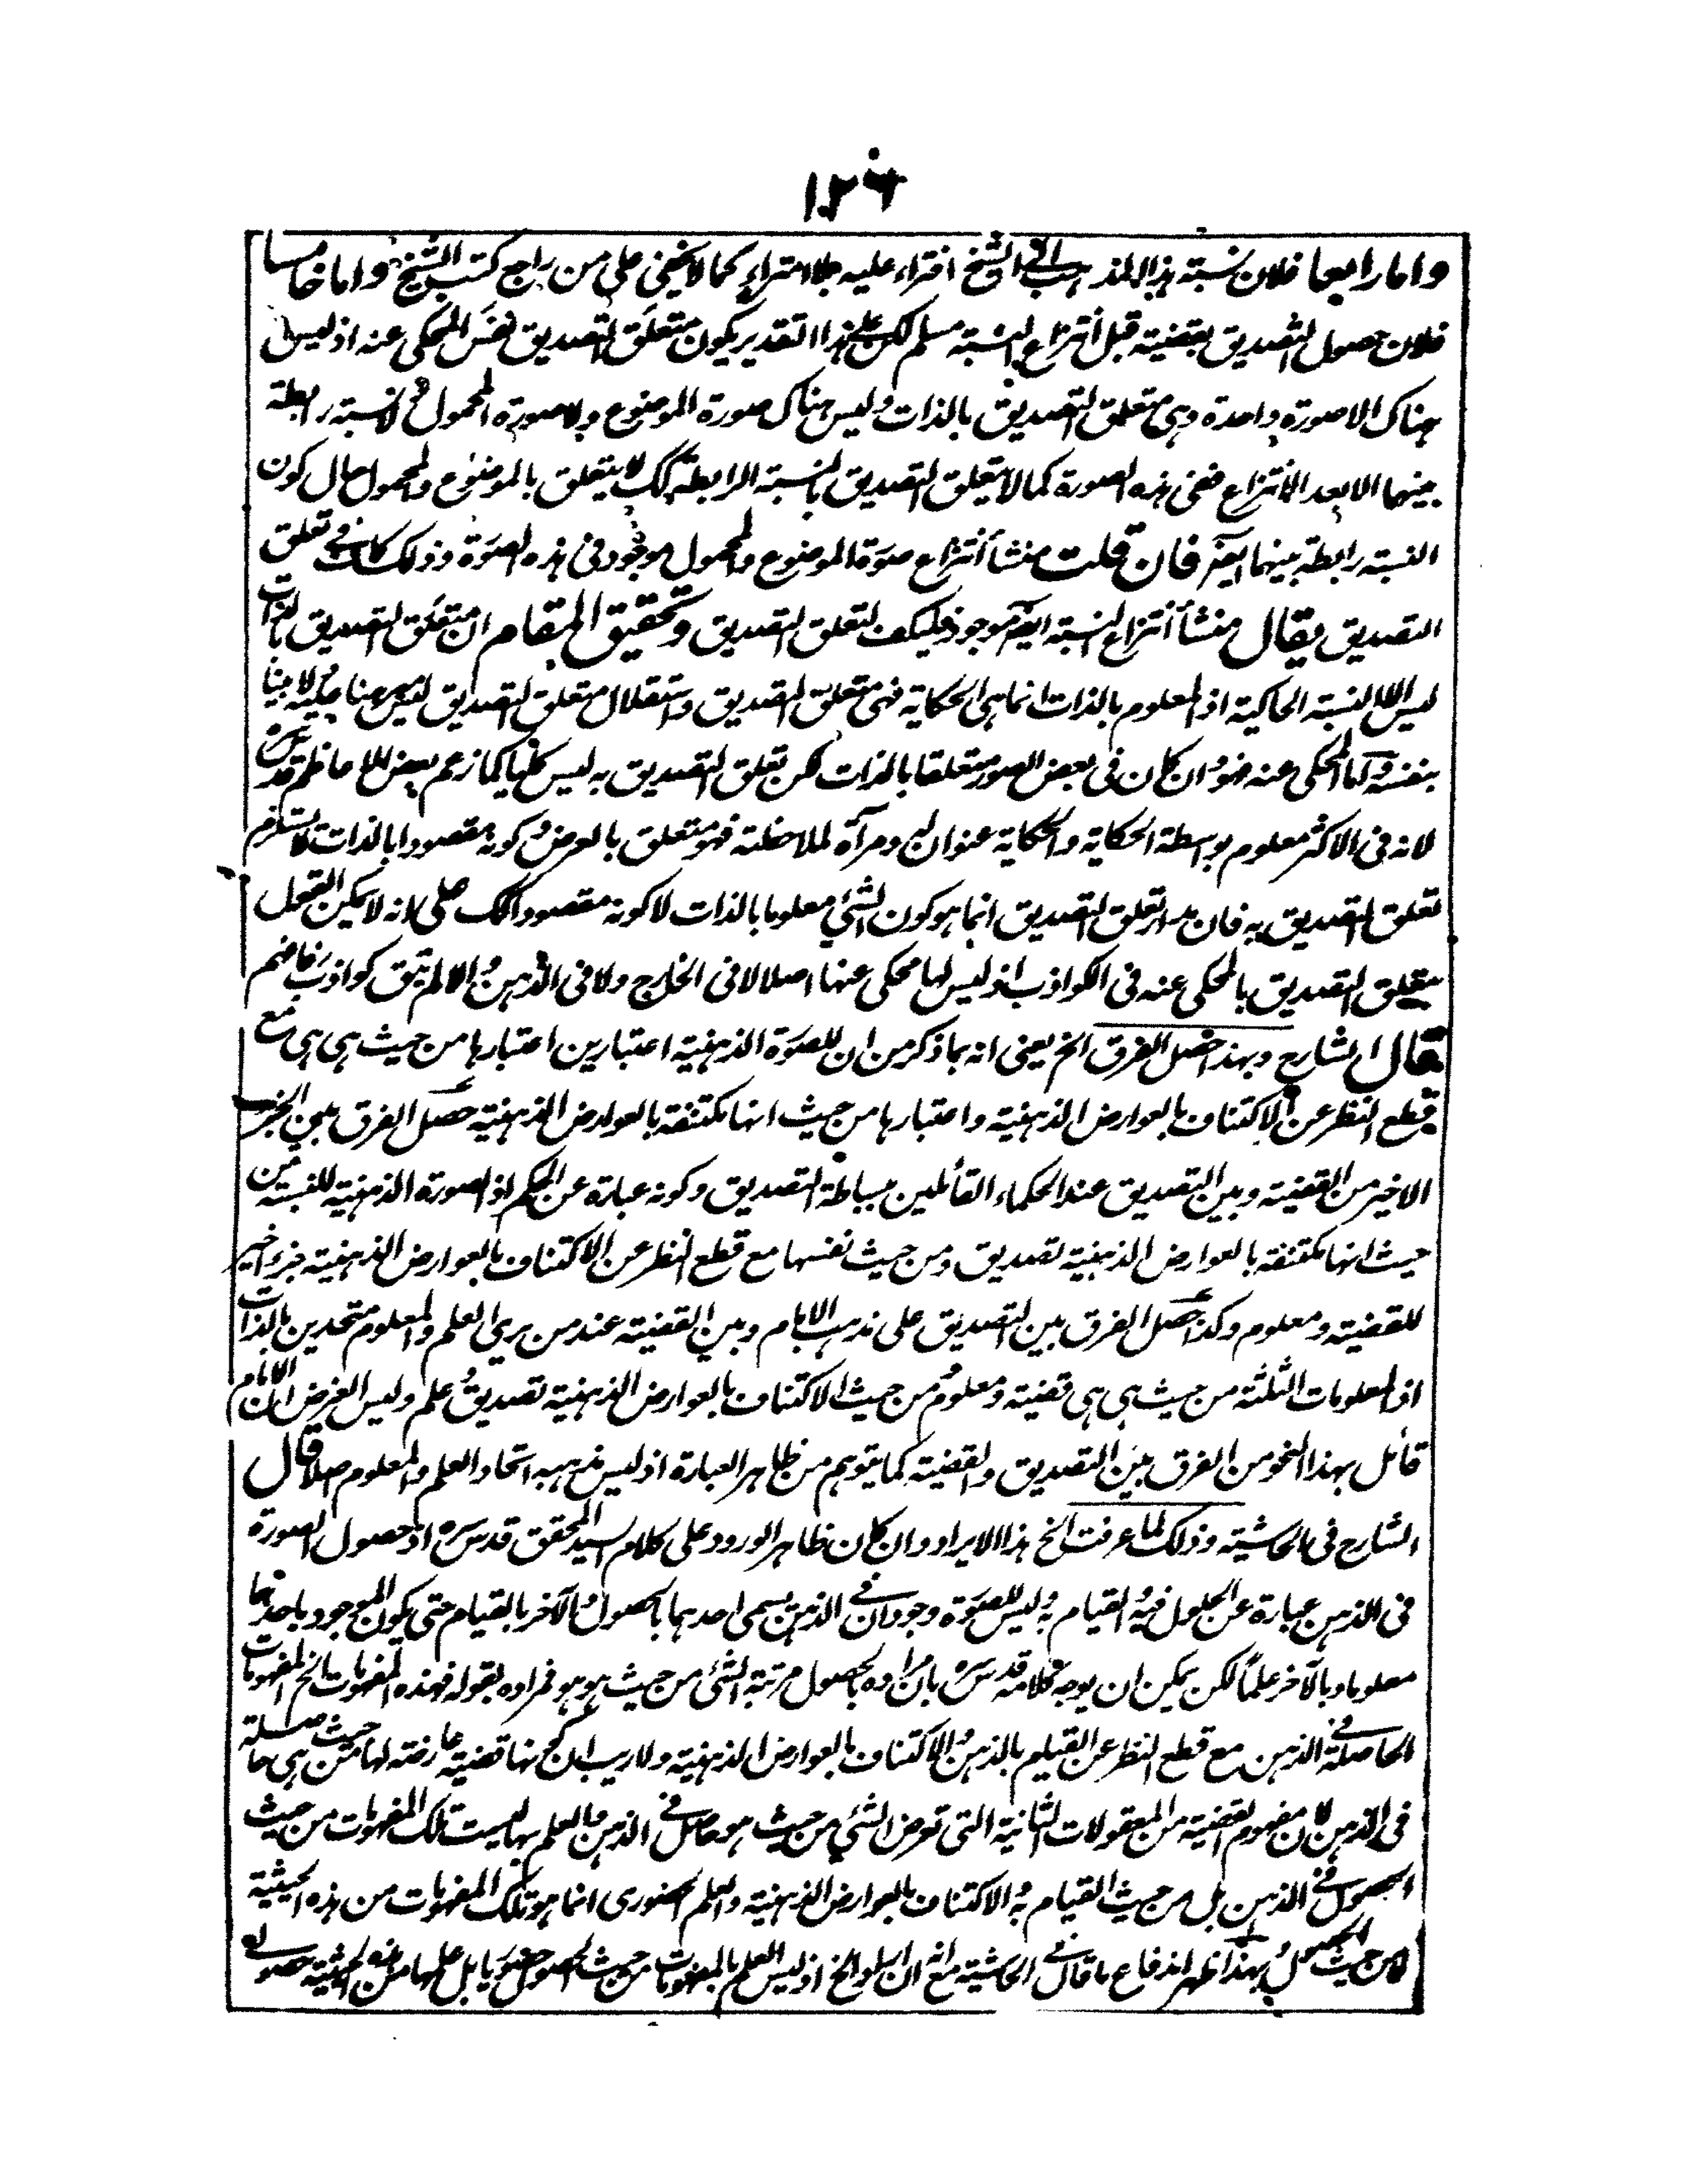 ١٢٦
واما رابعا فلان نسبة هذا المذهب الى الشيخ افتراء عليه بلا امتراء كما لا يخفى على من راجع كتب الشيخ واما خامسا
فلان حصول التصديق بقضية قبل انتزاع النسبة مسلم لكن على هذا التقدير يكون متعلق التصديق نفس المحكى عنه اذ ليس
هناك الا صورة واحدة وهى متعلق التصديق بالذات وليس هناك صورة الموضوع ولا صورة المحمول ولا نسبة رابطة
بينهما الا بعد الانتزاع ففى هذه الصورة كما لا يتعلق التصديق بالنسبة الرابطة كك لا يتعلق بالموضوع والمحمول حال كون
النسبة رابطة بينهما ايضا فان قلت منشأ انتزاع صورة الموضوع والمحمول موجود فى هذه الصورة وذلك كاف فى تعلق
التصديق يقال منشأ انتزاع النسبة ايضا موجود فليكف لتعلق التصديق وتحقيق المقام ان متعلق التصديق بالذات
ليس الا النسبة الحاكية اذ المعلوم بالذات انما هى الحكاية فهى متعلق التصديق واستقلال متعلق التصديق ليس بينا ولا مبينا
بنفسه واما المحكى عنه فهو وان كان فى بعض الصور متعلقا بالذات لكن تعلق التصديق به ليس كليا كما زعم بعض الاعاظم قدس سره
لانه فى الاكثر معلوم بواسطة الحكاية والحكاية عنوان له ومرآة لملاحظته فهو متعلق بالعرض وكونه مقصودا بالذات لا يستلزم
تعلق التصديق به فان مدار تعلق التصديق انما هو كون الشئ معلوما بالذات لا كونه مقصودا كك على انه لا يمكن القول
بتعلق التصديق بالمحكى عنه فى الكواذب اذ ليس لها محكى عنها اصلا لا فى الخارج ولا فى الذهن والا لم تبق كواذب فافهم
قال الشارح وبهذا حصل الفرق الخ يعنى انه بما ذكر من ان للصورة الذهنية اعتبارين اعتبارها من حيث هى هى مع
قطع النظر عن الاكتناف بالعوارض الذهنية واعتبارها من حيث انها مكتنفة بالعوارض الذهنية حصل الفرق بين الجزء
الاخير من القضية وبين التصديق عند الحكماء القائلين ببساطة التصديق وكونه عبارة عن الحكم اذ الصورة الذهنية للنسبة من
حيث انها مكتنفة بالعوارض الذهنية تصديق ومن حيث نفسها مع قطع النظر عن الاكتناف بالعوارض الذهنية جزء اخير
للقضية ومعلوم وكذا حصل الفرق بين التصديق على مذهب الامام وبين القضية عند من يرى العلم والمعلوم متحدين بالذات
اذ المعلومات الثلثة من حيث هى هى قضية ومعلوم ومن حيث الاكتناف بالعوارض الذهنية تصديق وعلم وليس الغرض ان الامام
قائل بهذا النحو من الفرق بين التصديق والقضية كما يتوهم من ظاهر العبارة اذ ليس مذهبه اتحاد العلم والمعلوم اصلا قال
الشارح فى الحاشية وذلك لما عرفت الخ هذا الايراد وان كان ظاهر الورود على كلام السيد المحقق قدس سره اذ حصول الصورة
فى الذهن عبارة عن الحلول فيه والقيام به وليس للصورة وجودان فى الذهن يسمى احدهما بالحصول والآخر بالقيام حتى يكون الموجود باحدهما
معلوما وبالآخر علما لكن يمكن ان يوجه كلامه قدس سره بان مراده بالحصول مرتبة الشئ من حيث هو هو فمراده بقوله فهذه المفهومات الخ المفهومات
الحاصلة فى الذهن مع قطع النظر عن القيام بالذهن والاكتناف بالعوارض الذهنية ولا ريب ان كونها قضية عارضة لها من حيث هى حاصلة
فى الذهن لان مفهوم القضية من المعقولات الثانية التى تعرض الشئ من حيث هو حاصل فى الذهن والعلم بها ليست تلك المفهومات من حيث
الحصول فى الذهن بل من حيث القيام به والاكتناف بالعوارض الذهنية والعلم الحضورى انما هو تلك المفهومات من هذه الحيثية
لا من حيث الحصول وبهذا ظهر اندفاع ما قال فى الحاشية مع انه ان اسلو الخ اذ ليس العلم بالمفهومات من حيث الحصول حضوريا بل علمها من هذه الحيثية حصولى